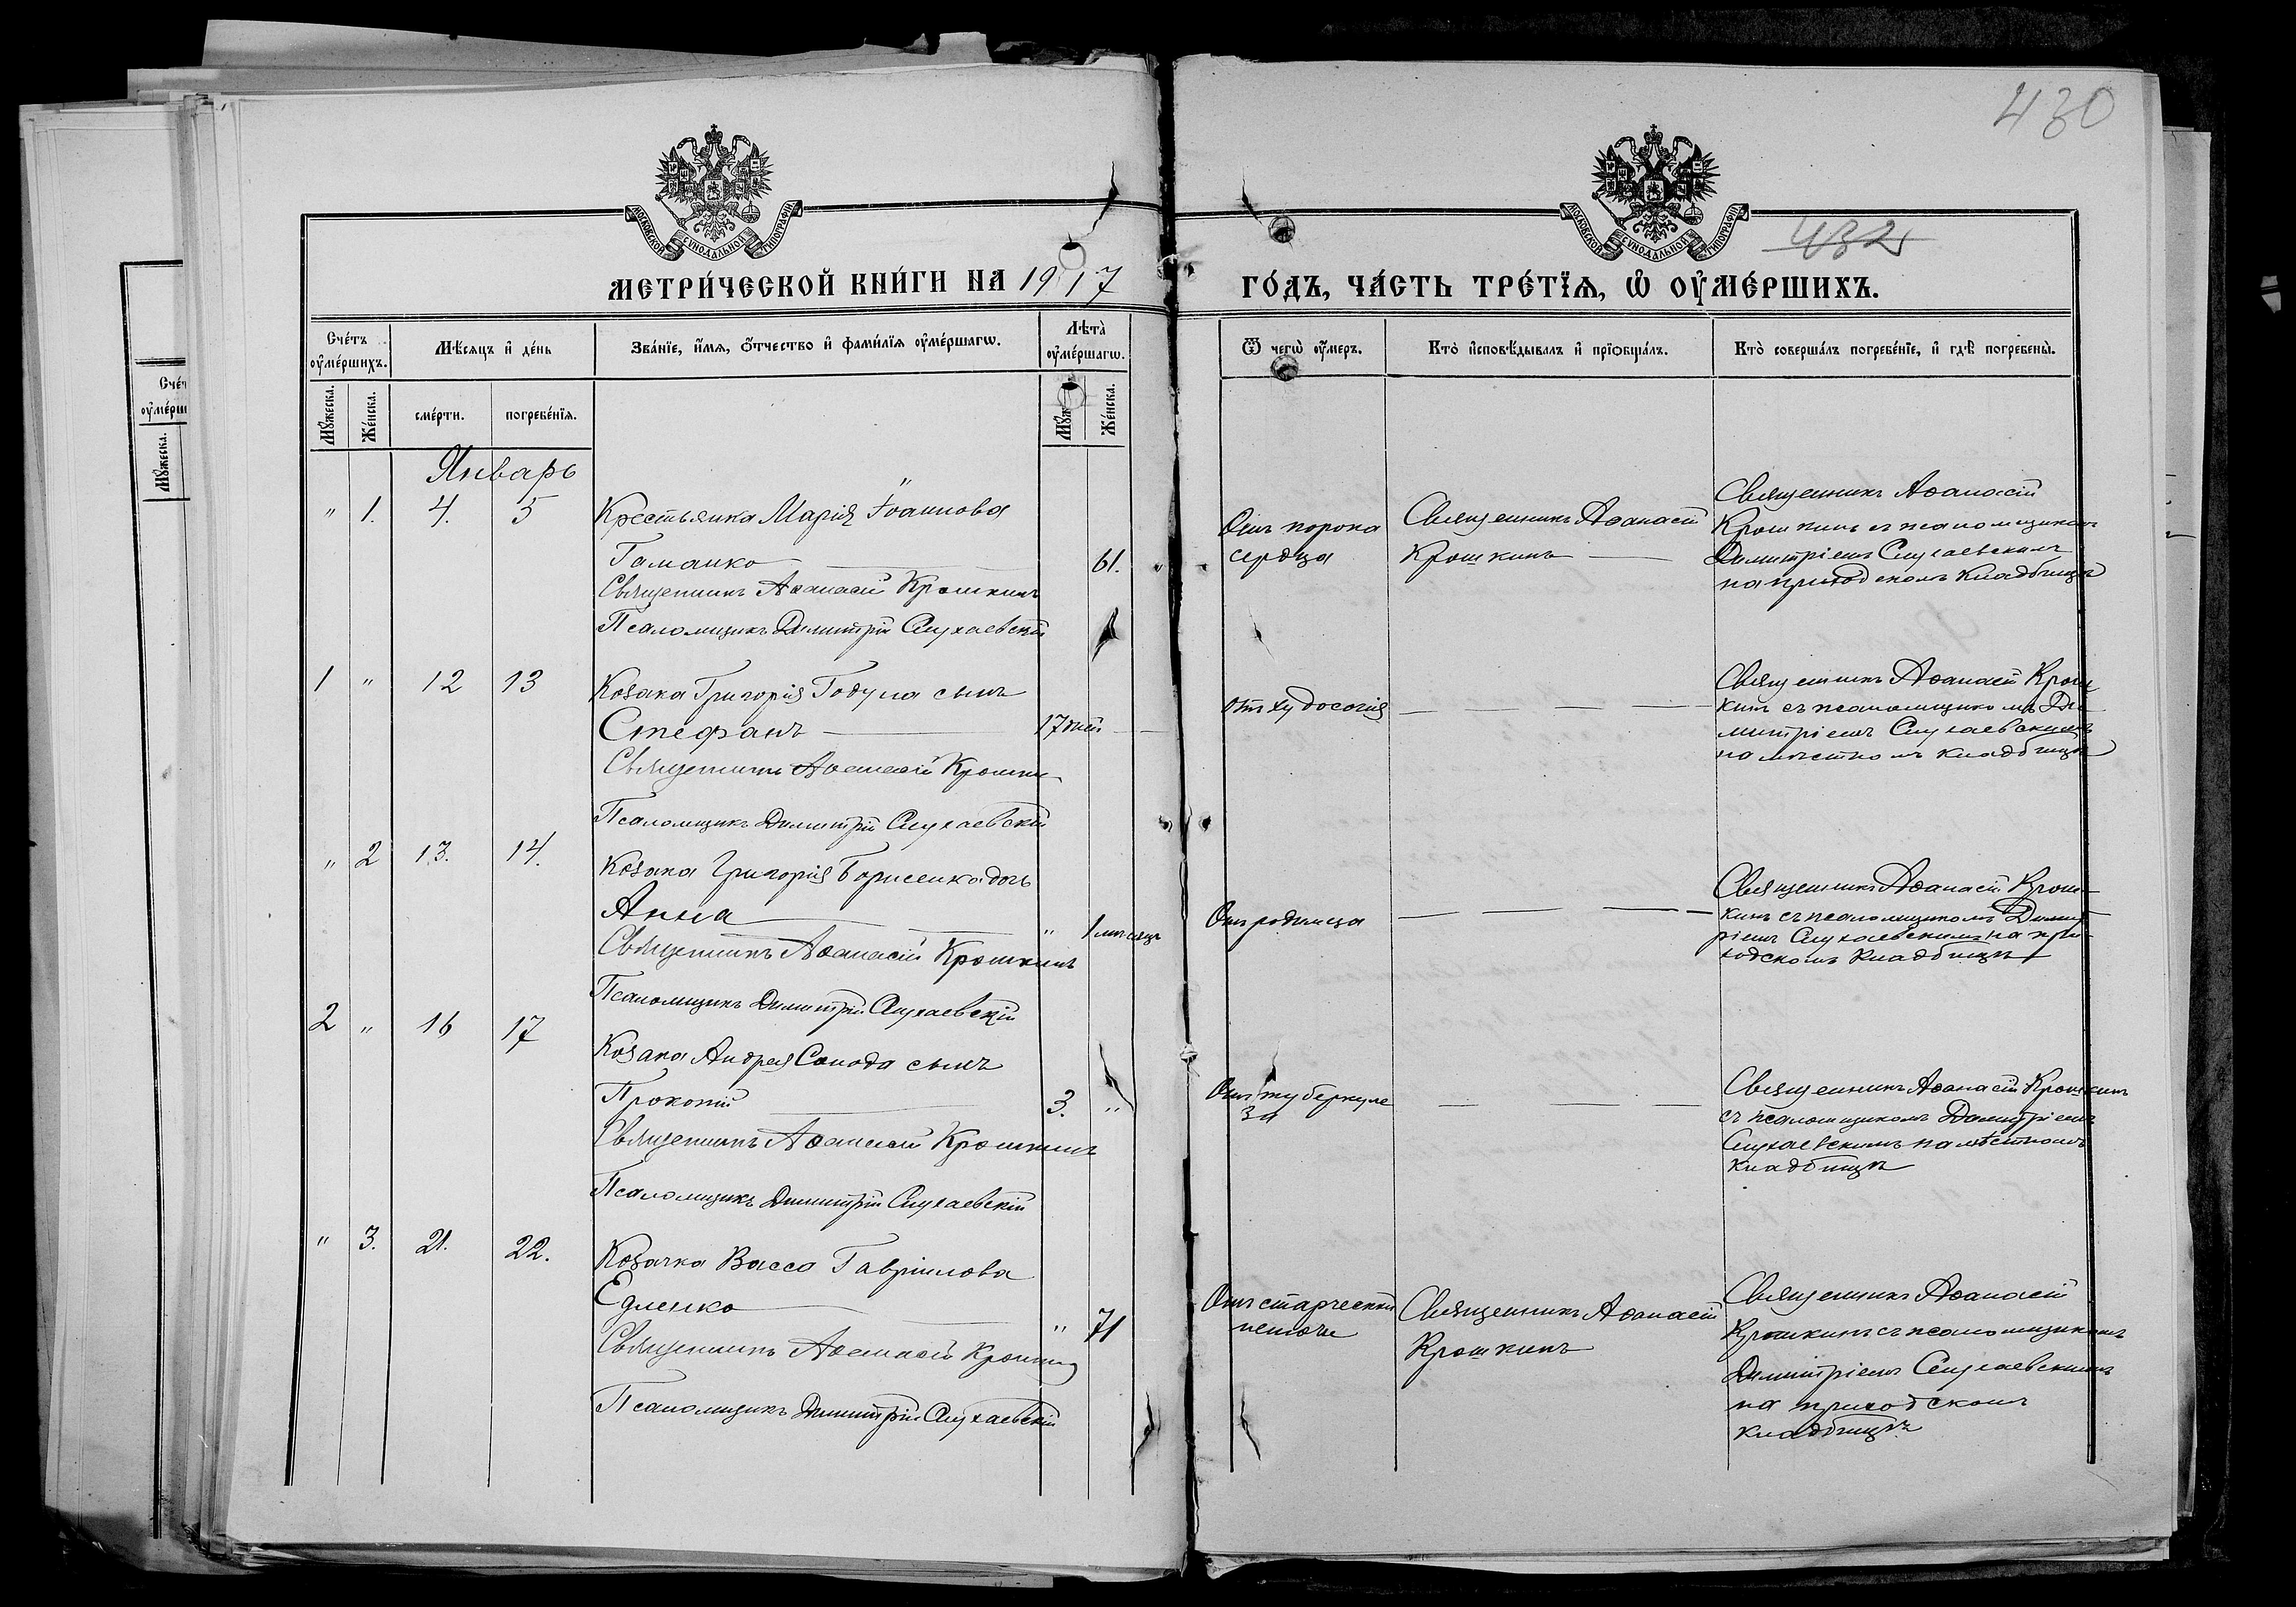 430
432
МОСКОВСКОЙ СѴНОДАЛЬНОЙ ТИПОГРАФІИ
МОСКОВСКОЙ СѴНОДАЛЬНОЙ ТИПОГРАФІИ
МЕТРИ́ЧЕСКОЙ КНИ́ГИ НА 1917
ГО́ДЪ, ЧА́СТЬ ТРЕ́ТЇѦ, Ѡ҆ ОУ҆МЕ́РШИХЪ.
Сче́тъ оу҆ме́ршихъ.
Мѣ́сяцъ и҆ де́нь
Зва́нїе, и҆́мѧ, ѻ҆́тчество и҆ фами́лїѧ оу҆ме́ршагѡ.
Лѣта̀ оу҆ме́ршагѡ.
Ѿ чегѡ̀ оу҆́меръ.
Кто̀ и҆сповѣ́дывалъ и҆ прїѡбща́лъ.
Кто̀ соверша́лъ погребе́нїе, и҆ гдѣ̀ погребены̀.
Мꙋ́жеска. Же́нска. сме́рти. погребе́нїѧ. Мꙋж Же́нска.
Январь
" 1. 4. 5 Крестьянка Марія Іоаннова
Гаманко 61.
Священникъ Аѳанасій Крошкинъ
Псаломщикъ Димитрій Слухаевскій
Отъ порока
сердца
Священникъ Аѳанасій
Крошкинъ
Священникъ Аѳанасій
Крошкинъ съ псаломщикомъ
Димитріемъ Слухаевскимъ
на приходскомъ кладбищѣ
1 " 12 13 Козака Григорія Годула сынъ
Стефанъ 17 дней
Священникъ Аѳанасій Крошкинъ
Псаломщикъ Димитрій Слухаевскій
отъ худосочія
Священникъ Аѳанасій Крош
кинъ съ псаломщикомъ Ди
митріемъ Слухаевскимъ
на мѣстномъ кладбищѣ
" 2 13. 14. Козака Григорія Борисенка дочь
Анна " 1 мѣсяцъ
Священникъ Аѳанасій Крошкинъ
Псаломщикъ Димитрій Слухаевскій
Отъ родимца
Священникъ Аѳанасій Крош-
кинъ съ псаломщикомъ Димит
ріемъ Слухаевскимъ на при-
ходскомъ кладбищѣ
2 " 16 17 Козака Андрея сынъ
Прокопій 3. "
Священникъ Аѳанасій Крошкинъ
Псаломщикъ Димитрій Слухаевскій
Отъ туберкуле
за
Священникъ Аѳанасій Крошкинъ
съ псаломщикомъ Димитріемъ
Слухаевскимъ на мѣстномъ
кладбищѣ
" 3. 21. 22. Козачка Васса Гавріилова
" 71
Священникъ Аѳанасій Крошкинъ
Псаломщикъ Димитрій Слухаевскій
Отъ старческой
немочи
Священникъ Аѳанасій
Крошкинъ
Священникъ Аѳанасій
Крошкинъ съ псаломщикомъ
Димитріемъ Слухаевскимъ
на приходскомъ
кладбищѣ